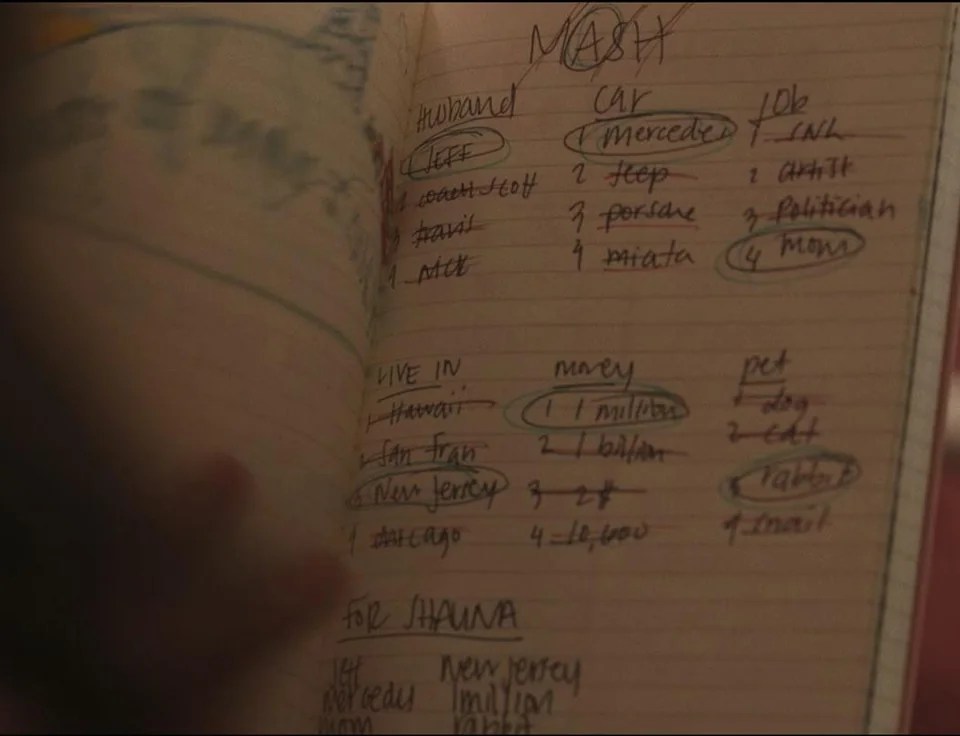 MASH
Husband Car Job
1 JEFF 1 mercedes 1 SNL
2 coach scott 2 Jeep 2 artist
3 travis 3 porsche 3 Politician
4 4 miata 4 mom
LIVE IN money pet
1 Hawaii 1 1 million 1 dog
2 San Fran 2 1 billion 2 cat
3 New Jersey 3 2$ 3 rabbit
4 chicago 4 10,000 4 snail
FOR SHAUNA
Jeff New Jersey
mercedes 1 million
mom rabbit